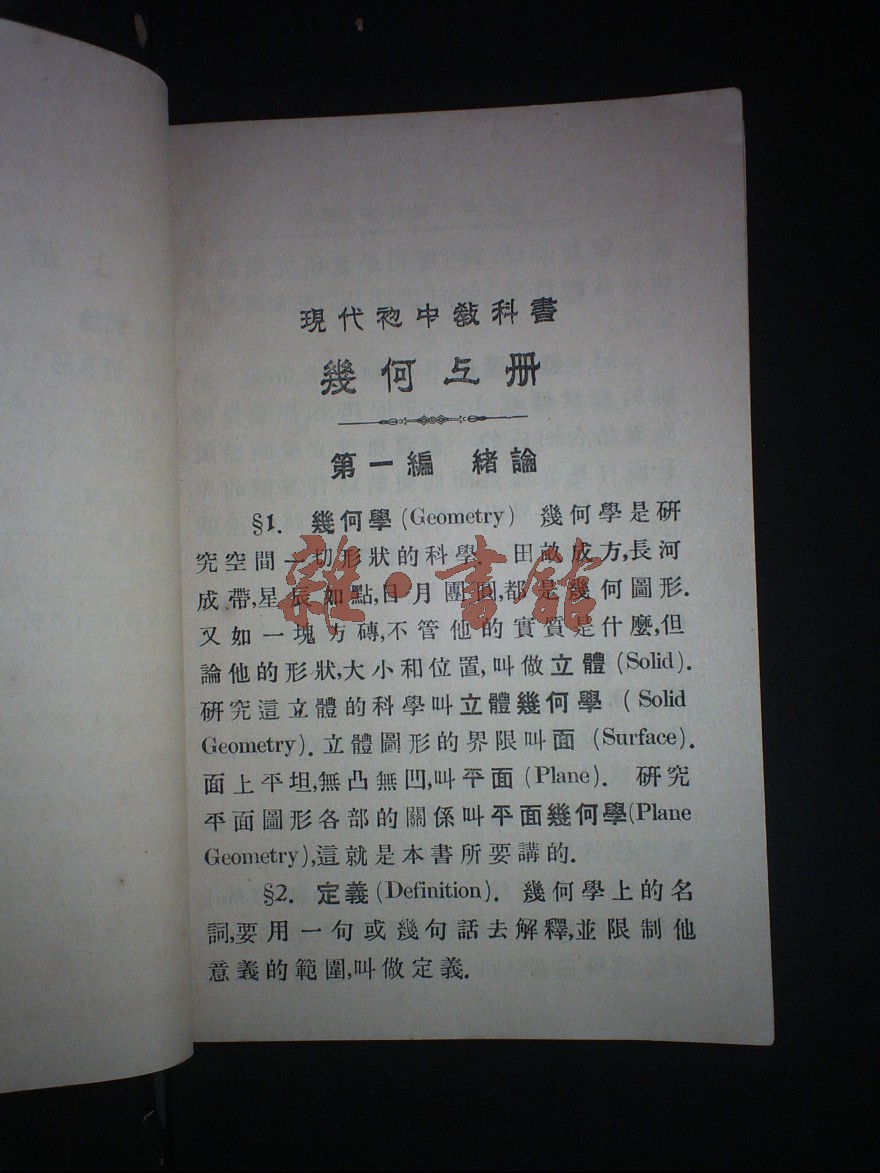 現代初中教科書
幾何上册
第一編 緒論
§1. 幾何學 (Geometry) 幾何學是研
究空間一切形狀的科學. 田畝成方,長河
成帶,星辰如點,日月團圓,都是幾何圖形.
又如一塊方磚,不管他的實質是什麼,但
論他的形狀,大小和位置,叫做立體 (Solid).
研究這立體的科學叫立體幾何學 (Solid
Geometry). 立體圖形的界限叫面 (Surface).
面上平坦,無凸無凹,叫平面 (Plane). 研究
平面圖形各部的關係叫平面幾何學(Plane
Geometry),這就是本書所要講的.
§2. 定義 (Definition). 幾何學上的名
詞,要用一句或幾句話去解釋,並限制他
意義的範圍,叫做定義.
雜·書館